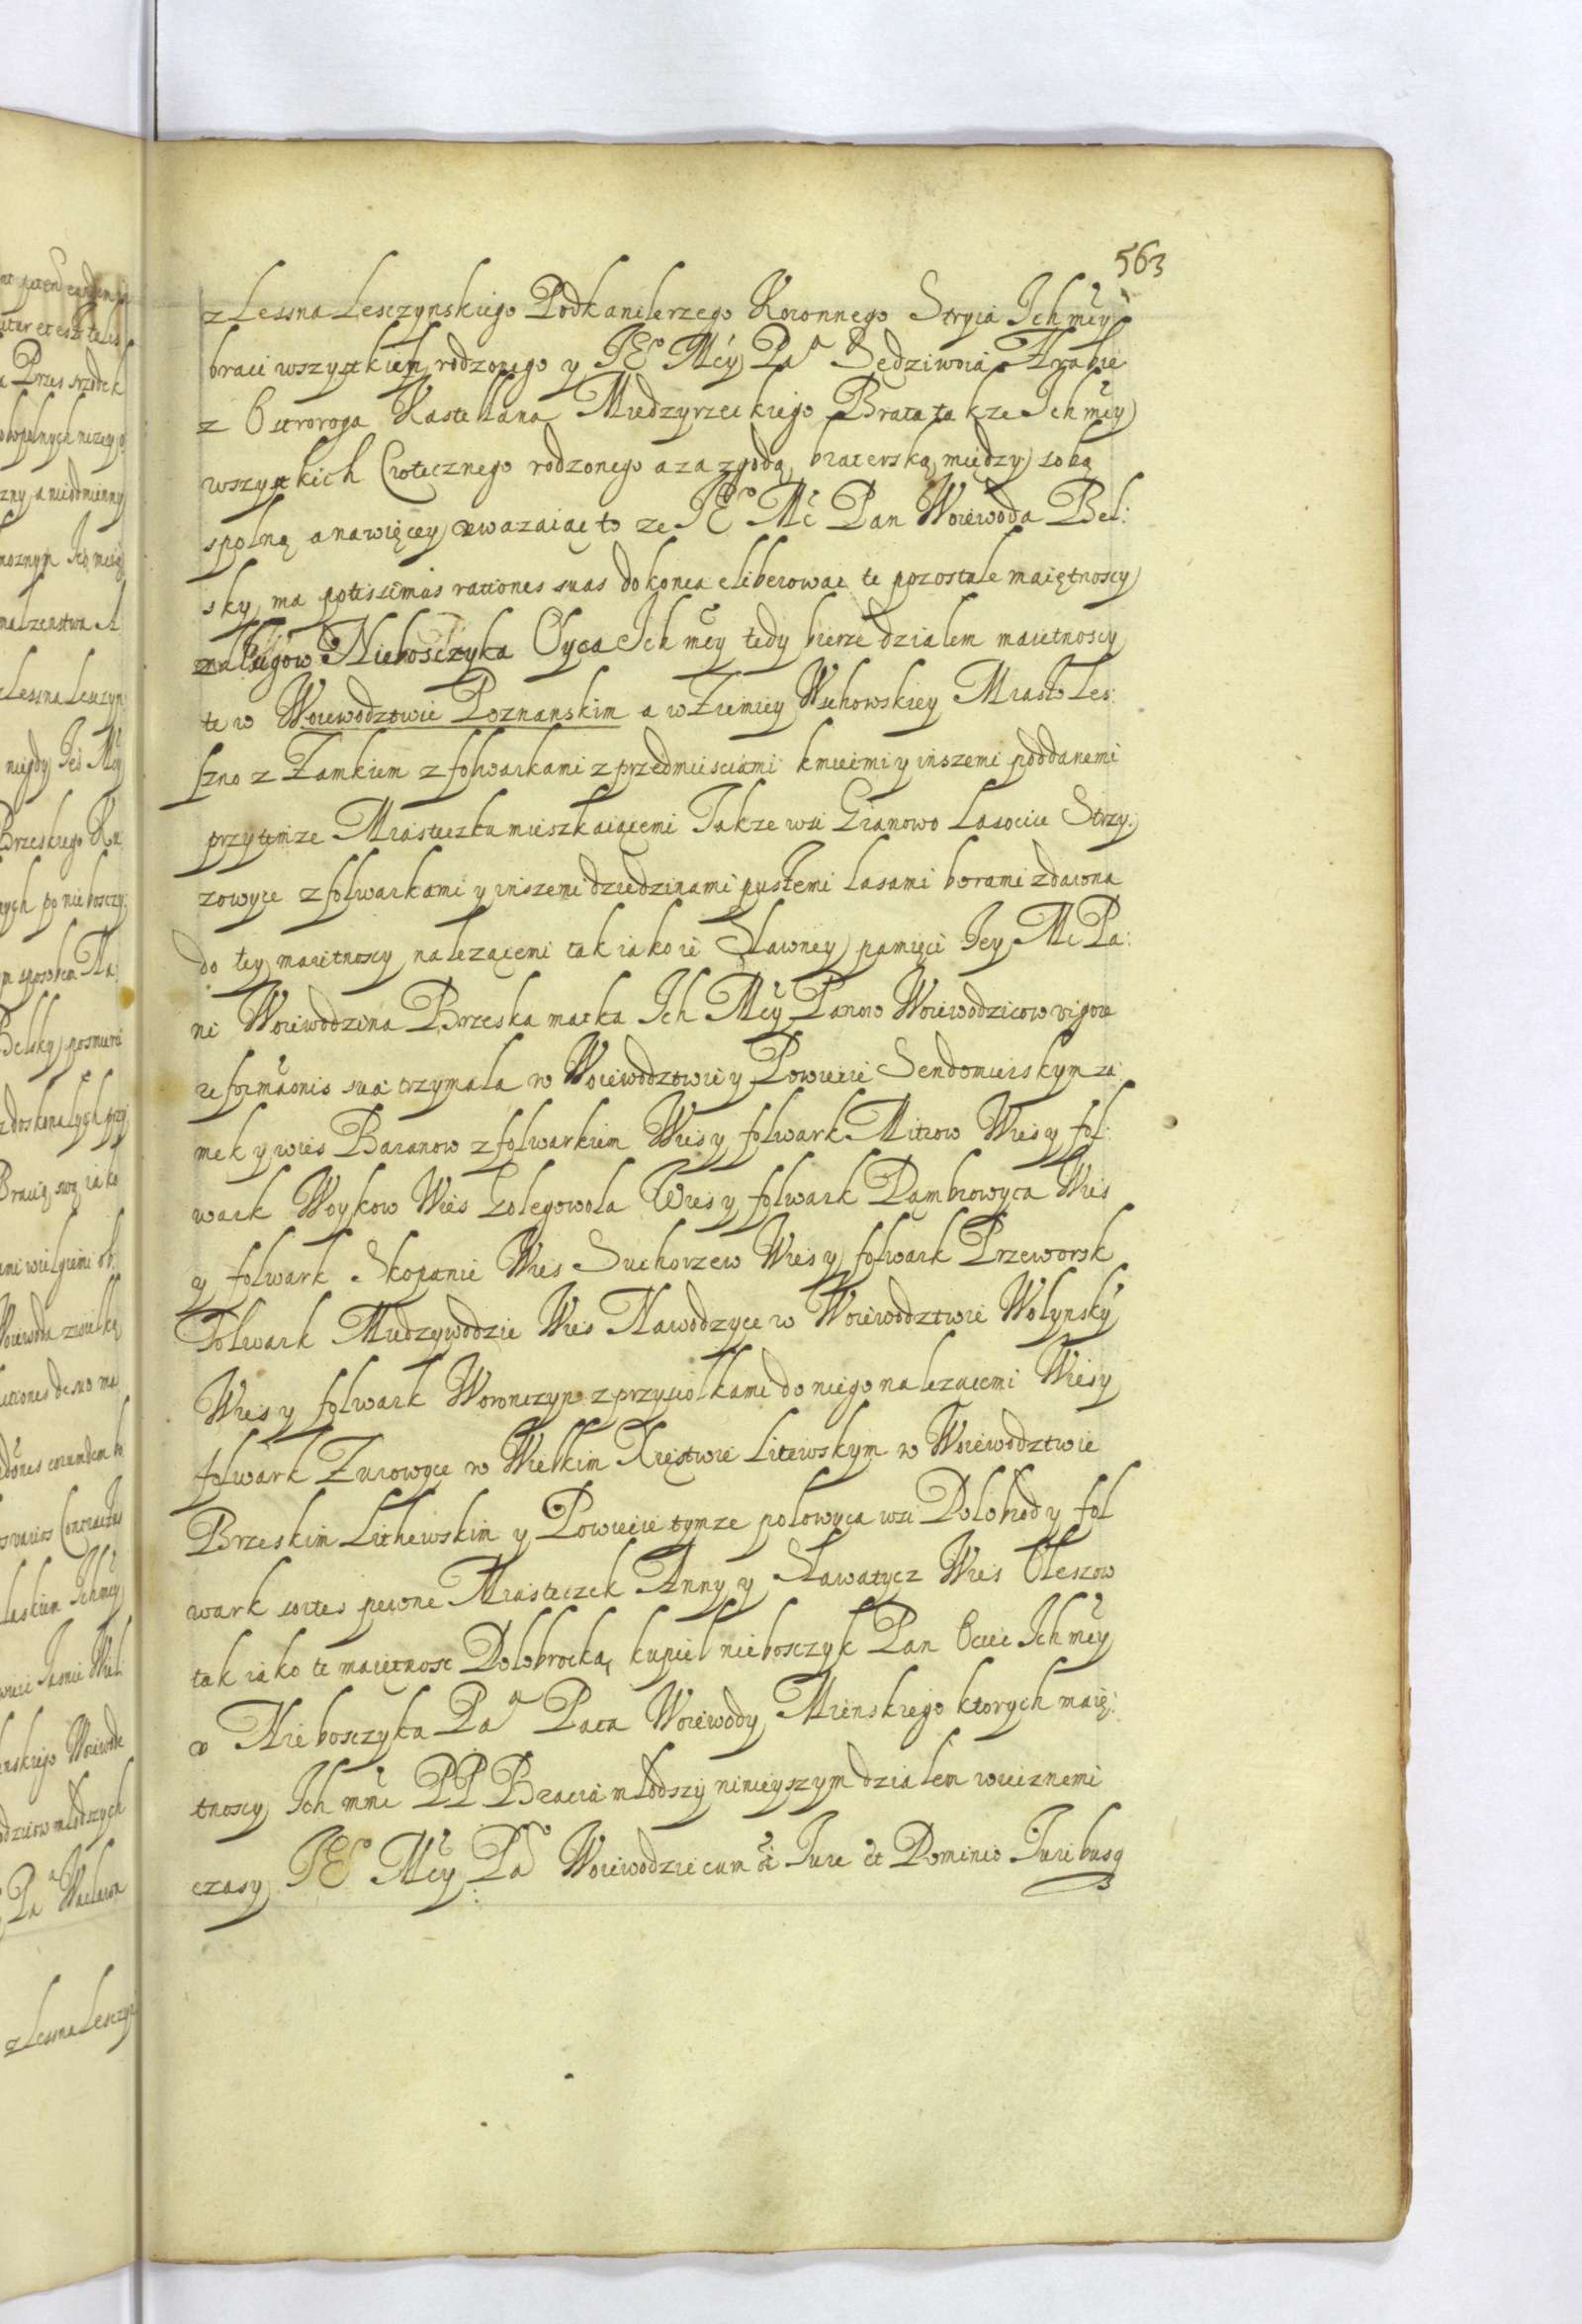 563
z Lessna Lesczynskiego Podkanclerzego Koronnego Stryia Ich mċy
braci wszystkich rodzonego y JE° Mċy Pa͏ᵃ Sędziwoia Hrabie
z Ostroroga Kastellana Miedzyrzeckiego Brata takze Ich mċy
wszystkich Ciotecznego rodzonego a za zgodą braterską między sobą
spolną a nawięcey uwazaiąc to ze JE° Mċ Pan Woiewoda Bel:
sky ma potissimas rationes suas do konca eliberowac te pozostale maiętnoscy
z Niebosczyka Oyca Ich mċy tedy bierze dzialem maietnoscy
te w Woiewodztwie Poznanskim a w Ziemiey Wschowskiey Miasto Les:
szno z Zamkiem z folwarkami z przedmiesciami kmieimi y inszemi poddanemi
przytemze Miasteczku mieszkaiącemi Takze wsi Gianowo Lasocice Strzy:
zowyce z folwarkami y inszemi dziedzinami pustemi Lasami borami zdawna
do tey maietnoscy nalezącemi tak iako ie Slawney pamięci Jey Mċ Pa:
ni Woiewodzina Brzeska matka Ich Mċy Panow Woiewodzicow vigore
reformaonis suæ trzymala w Woiewodztwie y Powiecie Sendomirskym za:
mek y wies Baranow z folwarkiem Wies y folwark Mitrow Wies y fol:
wark Woykow Wies Golegowola Wies y folwark Dąmbrowyca Wies
y folwark Skopanie Wies Suchorzew Wies y folwark Przeworsk
Folwark Miedzywodzie Wies Nawodzyce w Woiewodztwie Wolynskÿ
Wies y folwark Woronczyn z przysiolkami do niego nalezacemi Wies y
folwark Zurowyce w Wielkim Xięstwie Litewskym w Woiewodztwie
Brzeskim Lithewskim y Powiecie tymze polowyca wsi Dolohrod y fol
wark sortes pewne Miasteczek Anny y Slawatycz Wies Oleszow
tak iako te maiętnosc Dolobrocką kupiel niebosczyk Pan Ociec Ich mċy
v Niebosczyka Paᵃ Paca Woiewody Minskiego ktorych maię:
tnoscy Ich mċi PP Bracia mlodszy ninieyszym dzialem wieiznemi
czasy JE° Mċy Paᵘ Woiewodzie cum oi Jure et Dominio Juribusq